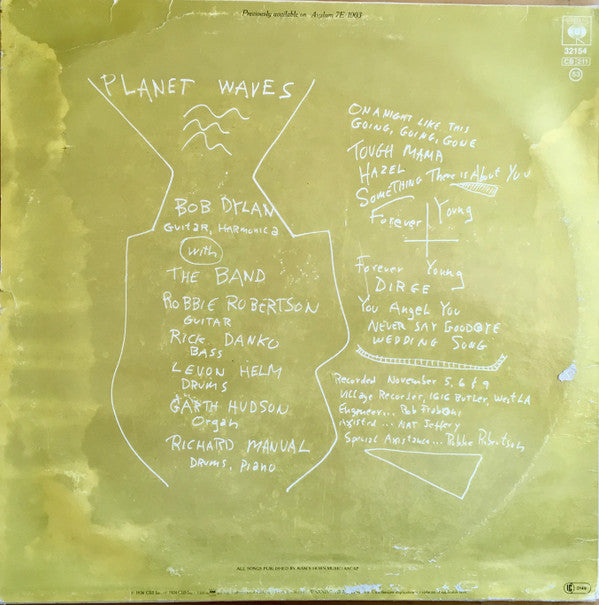 Previously available on Asylum 7E-1003
CBS
32154
CB 311
53
PLANET WAVES
BOB DYLAN
GUITAR, HARMONICA
with
THE BAND
ROBBIE ROBERTSON
GUITAR
RICK DANKO
BASS
LEVON HELM
DRUMS
GARTH HUDSON
Organ
RICHARD MANUAL
DRUMS, Piano
ON A NIGHT LIKE THIS
GOING, GOING, GONE
TOUGH MAMA
HAZEL
SOMETHING There is About You
Forever Young
Forever Young
DIRGE
You Angel You
NEVER SAY GOODBYE
WEDDING SONG
Recorded November 5, 6 & 9
Village Recorder, 1616 Butler, West LA
Engineer... Rob Fraboni
Assisted... NAT Jeffery
Special Assistance... Robbie Robertson
ALL SONGS PUBLISHED BY RAM'S HORN MUSIC/ASCAP